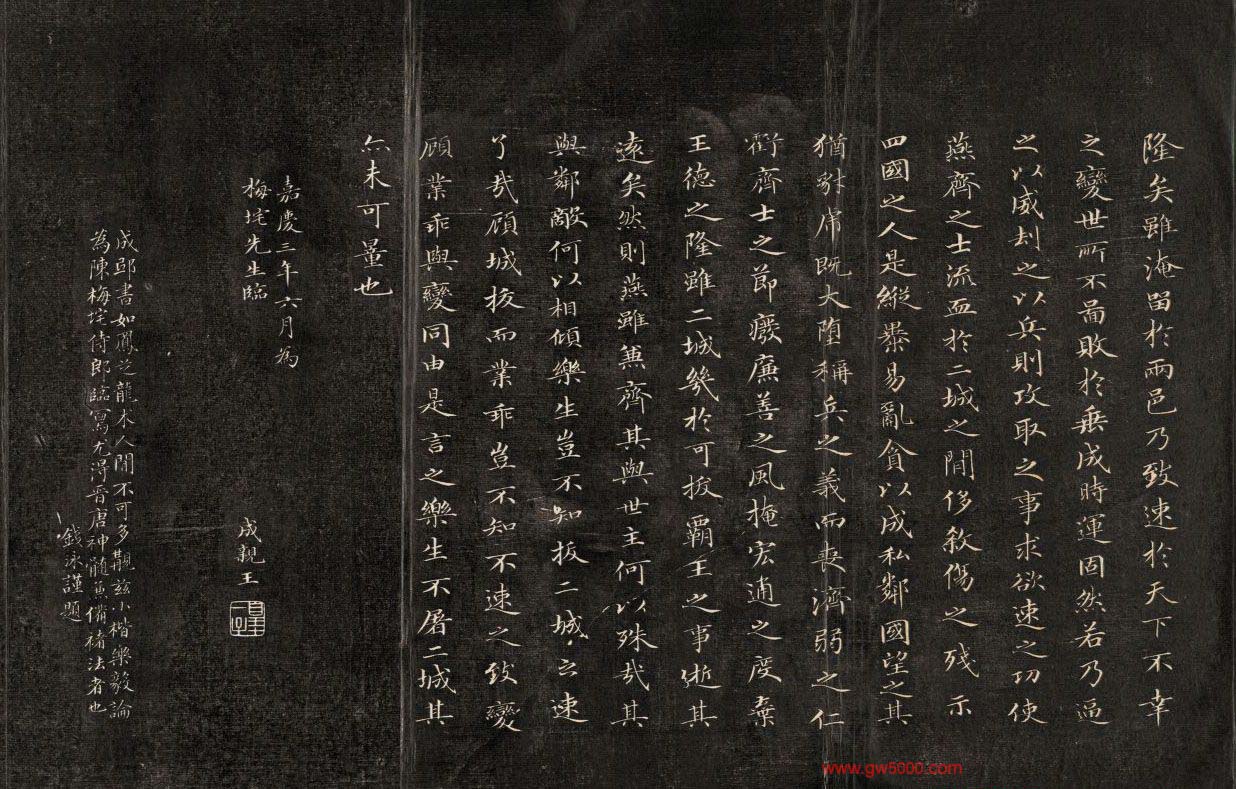 隆矣雖淹留於兩邑乃致速於天下不幸
之變世所不啚敗於垂成時運固然若乃逼
之以威刧之以兵則攻取之事求欲速之功使
燕齊之士流血於二城之閒侈煞傷之殘示
四國之人是縱暴易亂貪以成私鄰國望之其
猶豺虎既大墮稱兵之義而喪濟弱之仁
虧齊士之節廢廉善之風掩宏通之度棄
王德之隆雖二城幾於可拔霸王之事逝其
遠矣然則燕雖兼齊其與世主何以殊哉其
與鄰敵何以相傾樂生豈不知拔二城之速
了哉顧城拔而業乖豈不知不速之致變
顧業乖與變同由是言之樂生不屠二城其
亦未可量也
嘉慶三年六月為
梅垞先生臨
成親王
成邸書如鳳之龍木人閒不可多覯茲小楷樂毅論
為陳梅垞侍郎臨寫尤得晉唐神髓兼備褚法者也
錢泳謹題
www.gw5000.com